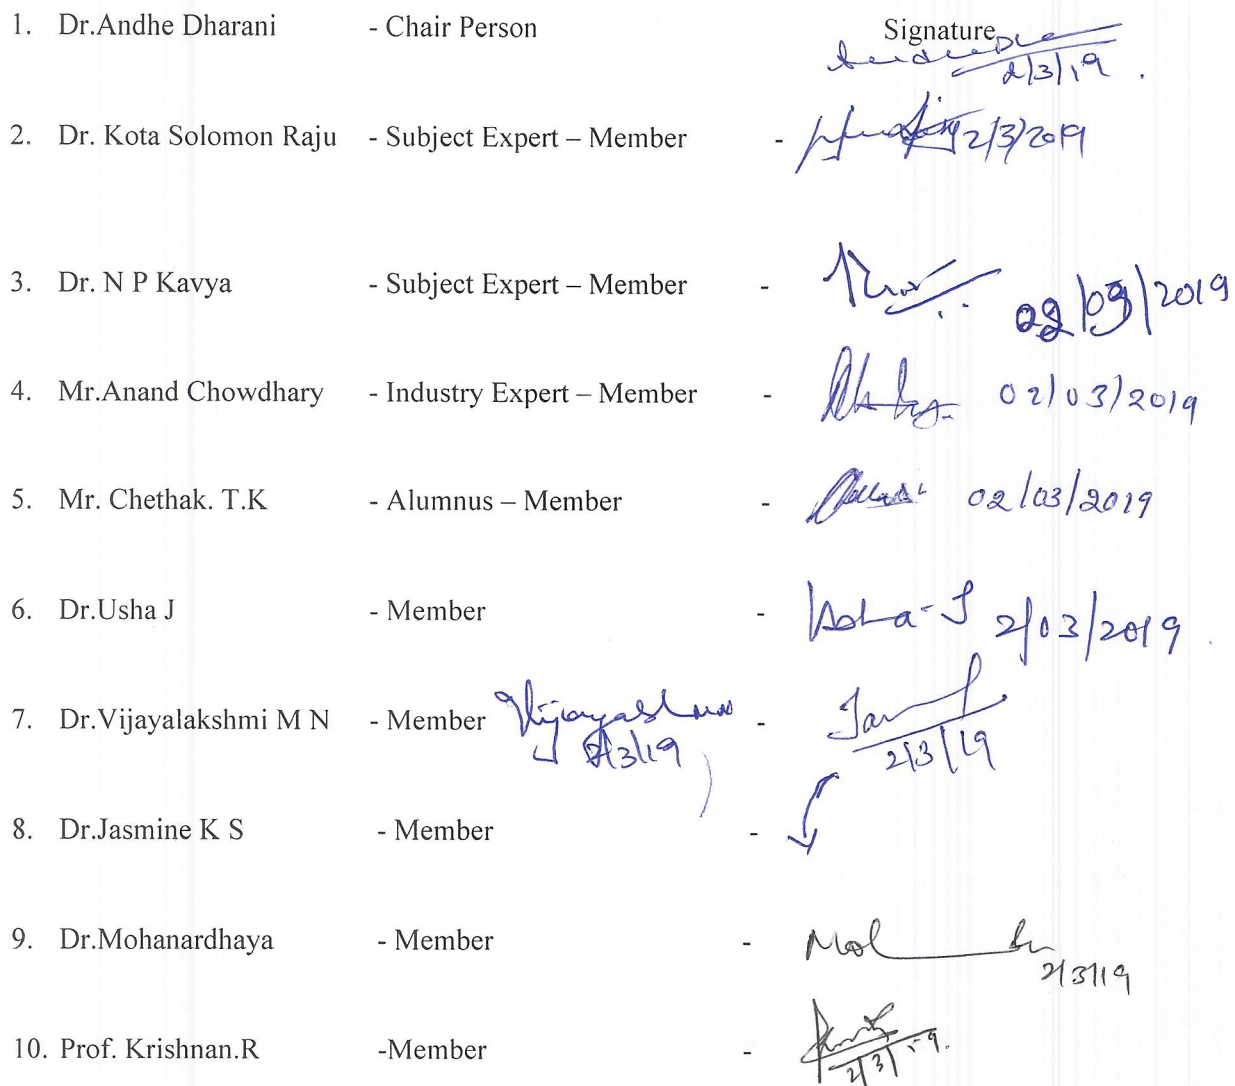 1. Dr.Andhe Dharani - Chair Person Signature
2/3/19.
2. Dr. Kota Solomon Raju - Subject Expert – Member - 2/3/2019
3. Dr. N P Kavya - Subject Expert – Member - 02/03/2019
4. Mr.Anand Chowdhary - Industry Expert – Member - 02/03/2019
5. Mr. Chethak. T.K - Alumnus – Member - 02/03/2019
6. Dr.Usha J - Member - Usha-J 2/03/2019.
7. Dr.Vijayalakshmi M N - Member -
2/3/19 2/3/19
8. Dr.Jasmine K S - Member -
9. Dr.Mohanardhaya - Member -
2/3/19
10. Prof. Krishnan.R -Member -
2/3/19.